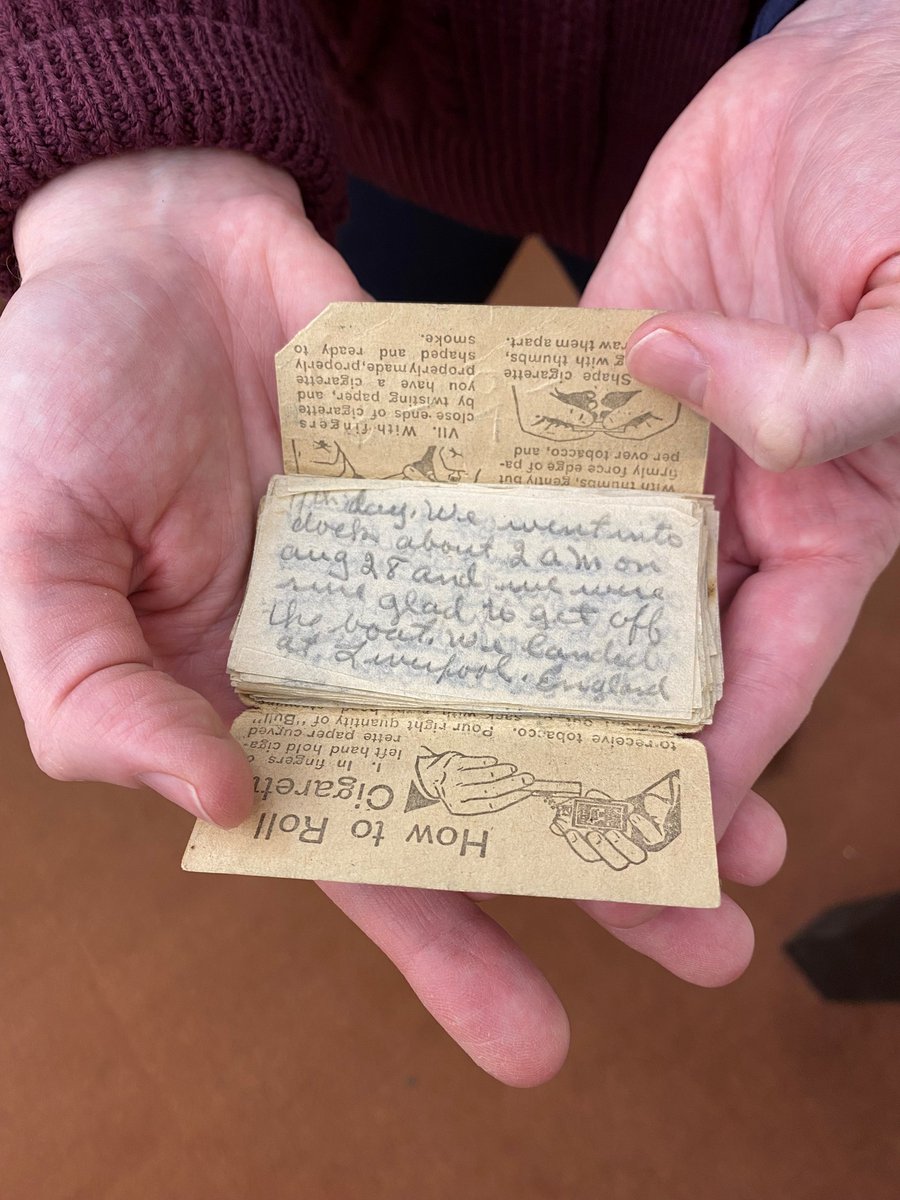 day. We went into
docks about 2 am on
aug 28 and we were
sure glad to get off
the boat. We landed
at Liverpool. England
How to Roll
Cigarett
I. In fingers
left hand hold ciga-
rette paper curved
to receive tobacco. Pour right quantity of "Bull"
with thumbs, gently but
firmly force edge of pa-
per over tobacco, and
Shape cigarette
with thumbs,
raw them apart.
VII. With fingers
close ends of cigarette
by twisting paper, and
you have a cigarette
properly made, properly
shaped and ready to
smoke.